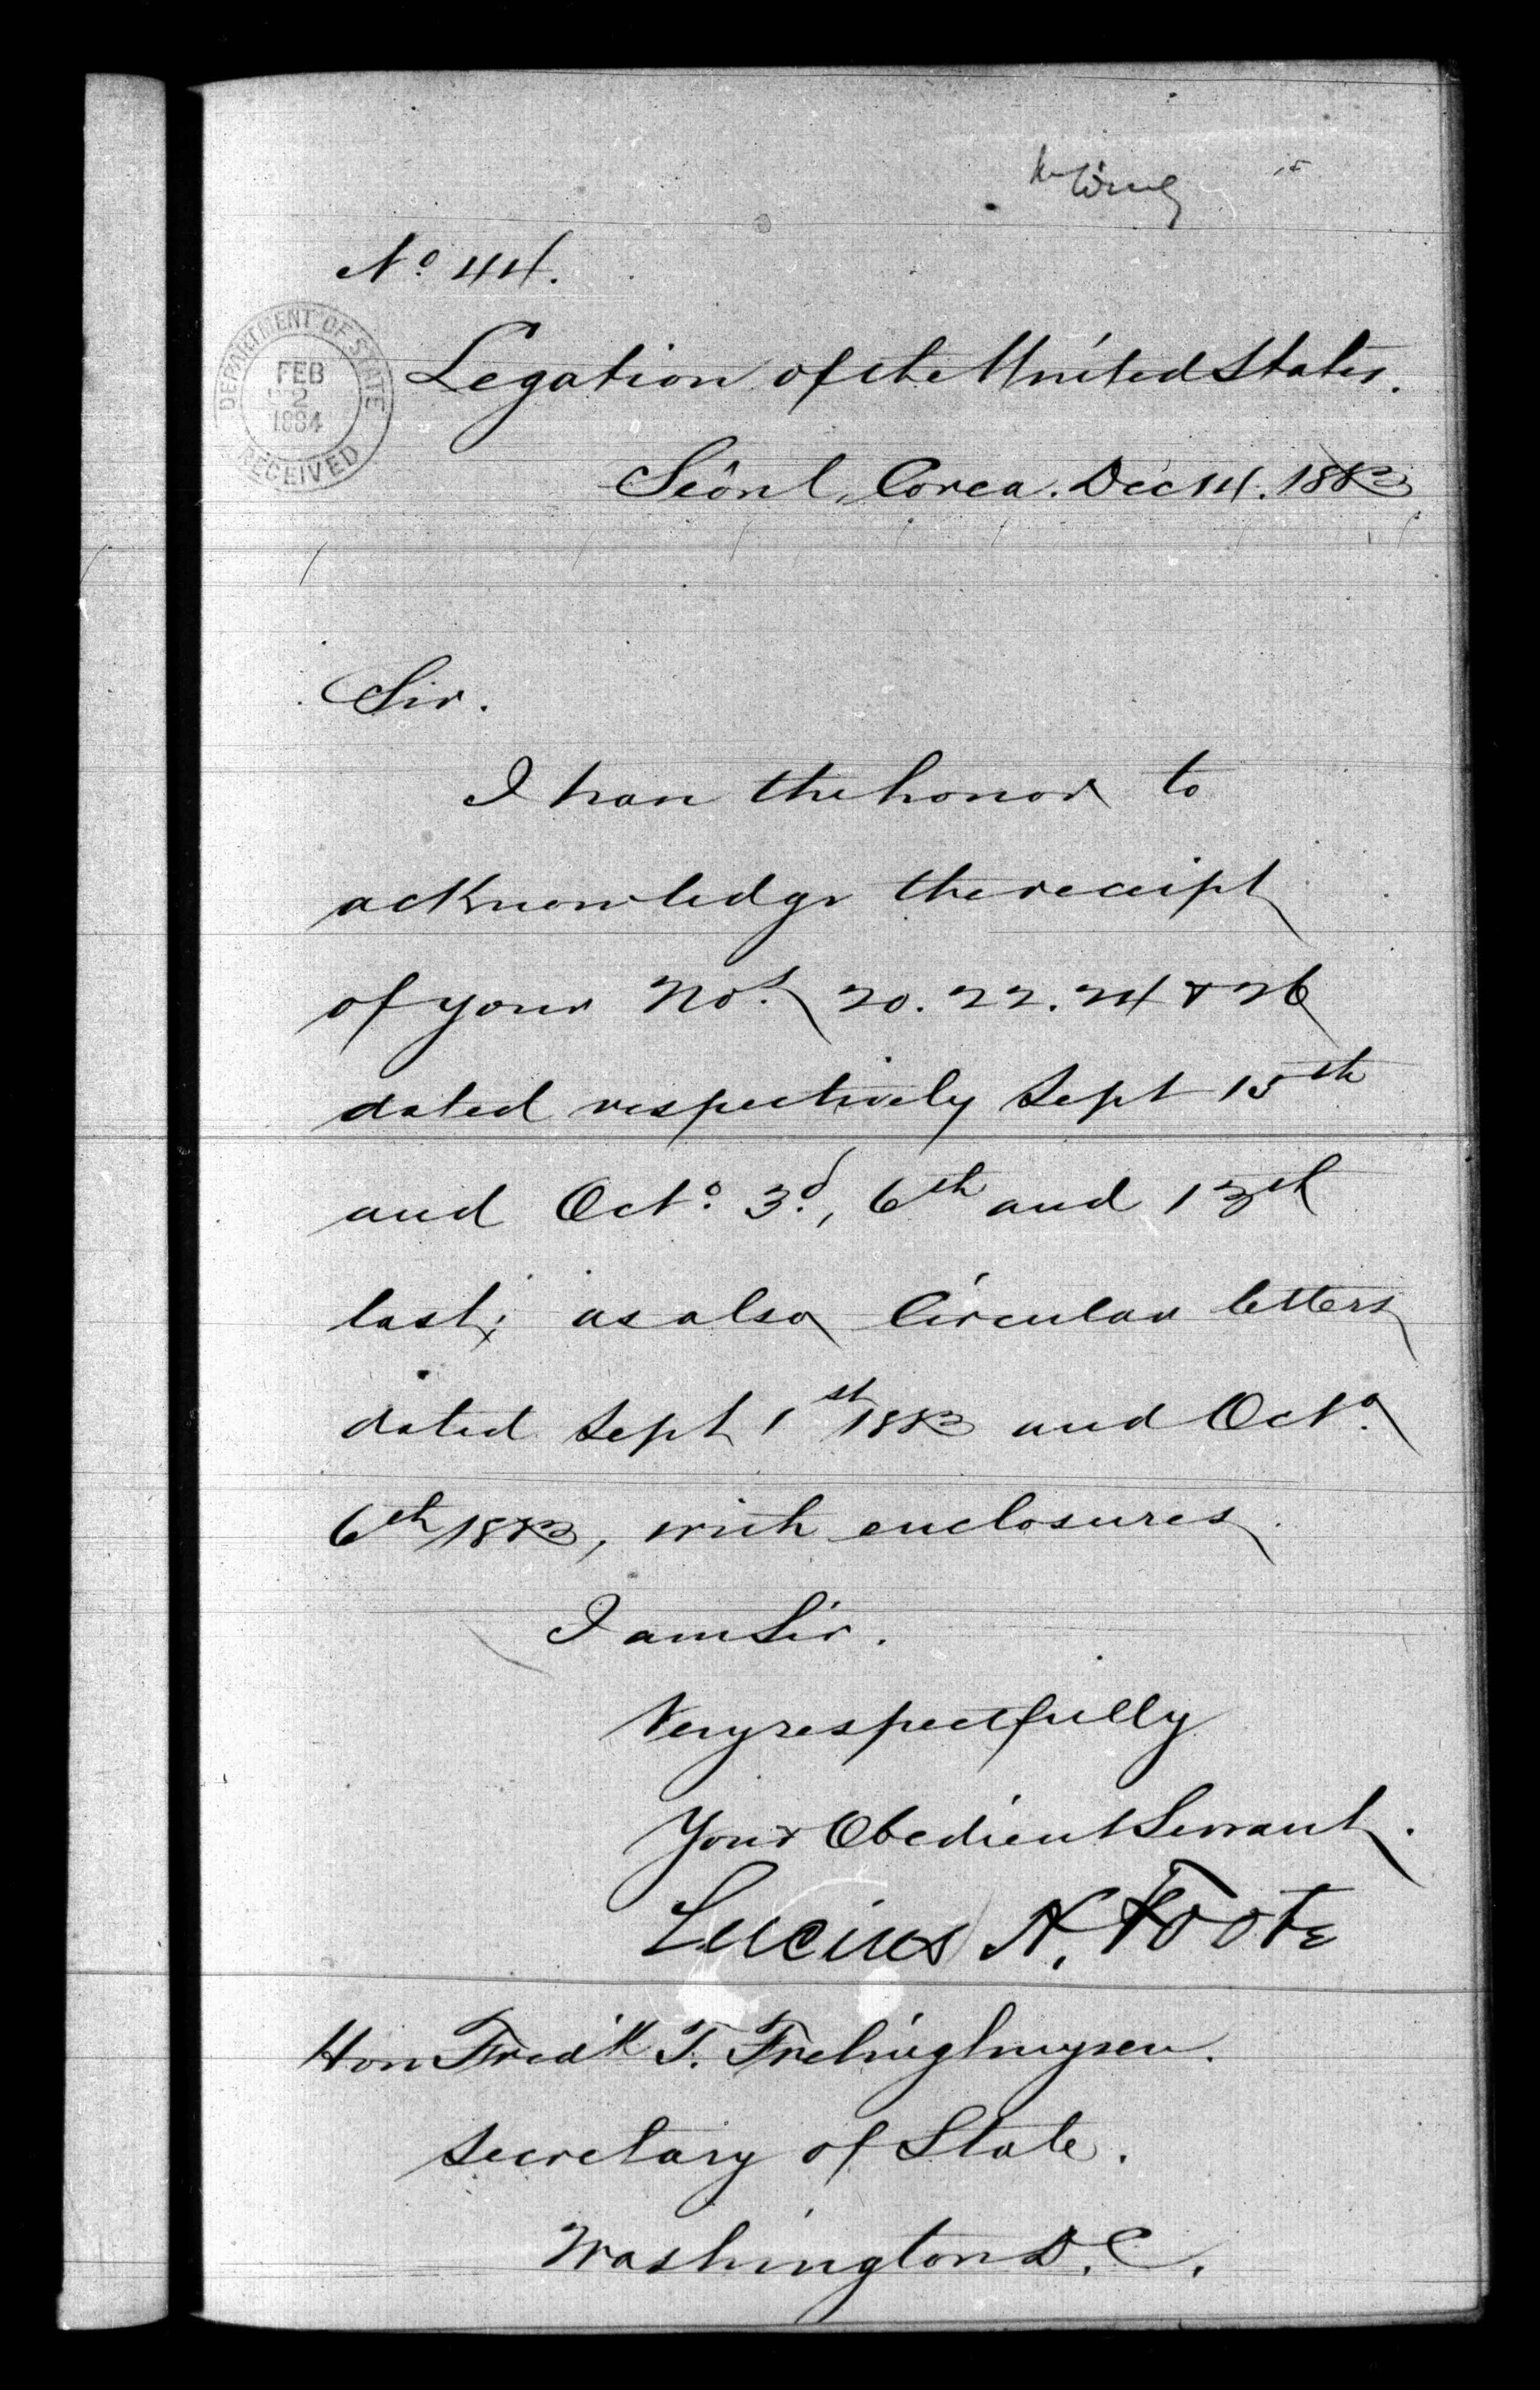 No 44.
DEPARTMENT OF STATE
FEB
2
1884
RECEIVED
Legation of the United States.
Seôul, Corea. Dec 14. 1883
Sir.
I have the honor to
acknowledge the receipt
of your Nos. 20. 22. 24 & 26
dated respectively Sept 15th
and Octo. 3d., 6th and 13th
last; as also Circular letters
dated Sept 1st 1883 and Octo.
6th 1883, with enclosures.
I am Sir.
Very respectfully
Your Obedient Servant.
Lucius H. Foote
Hon Fredk T. Frelinghuysen.
Secretary of State.
Washington D.C.